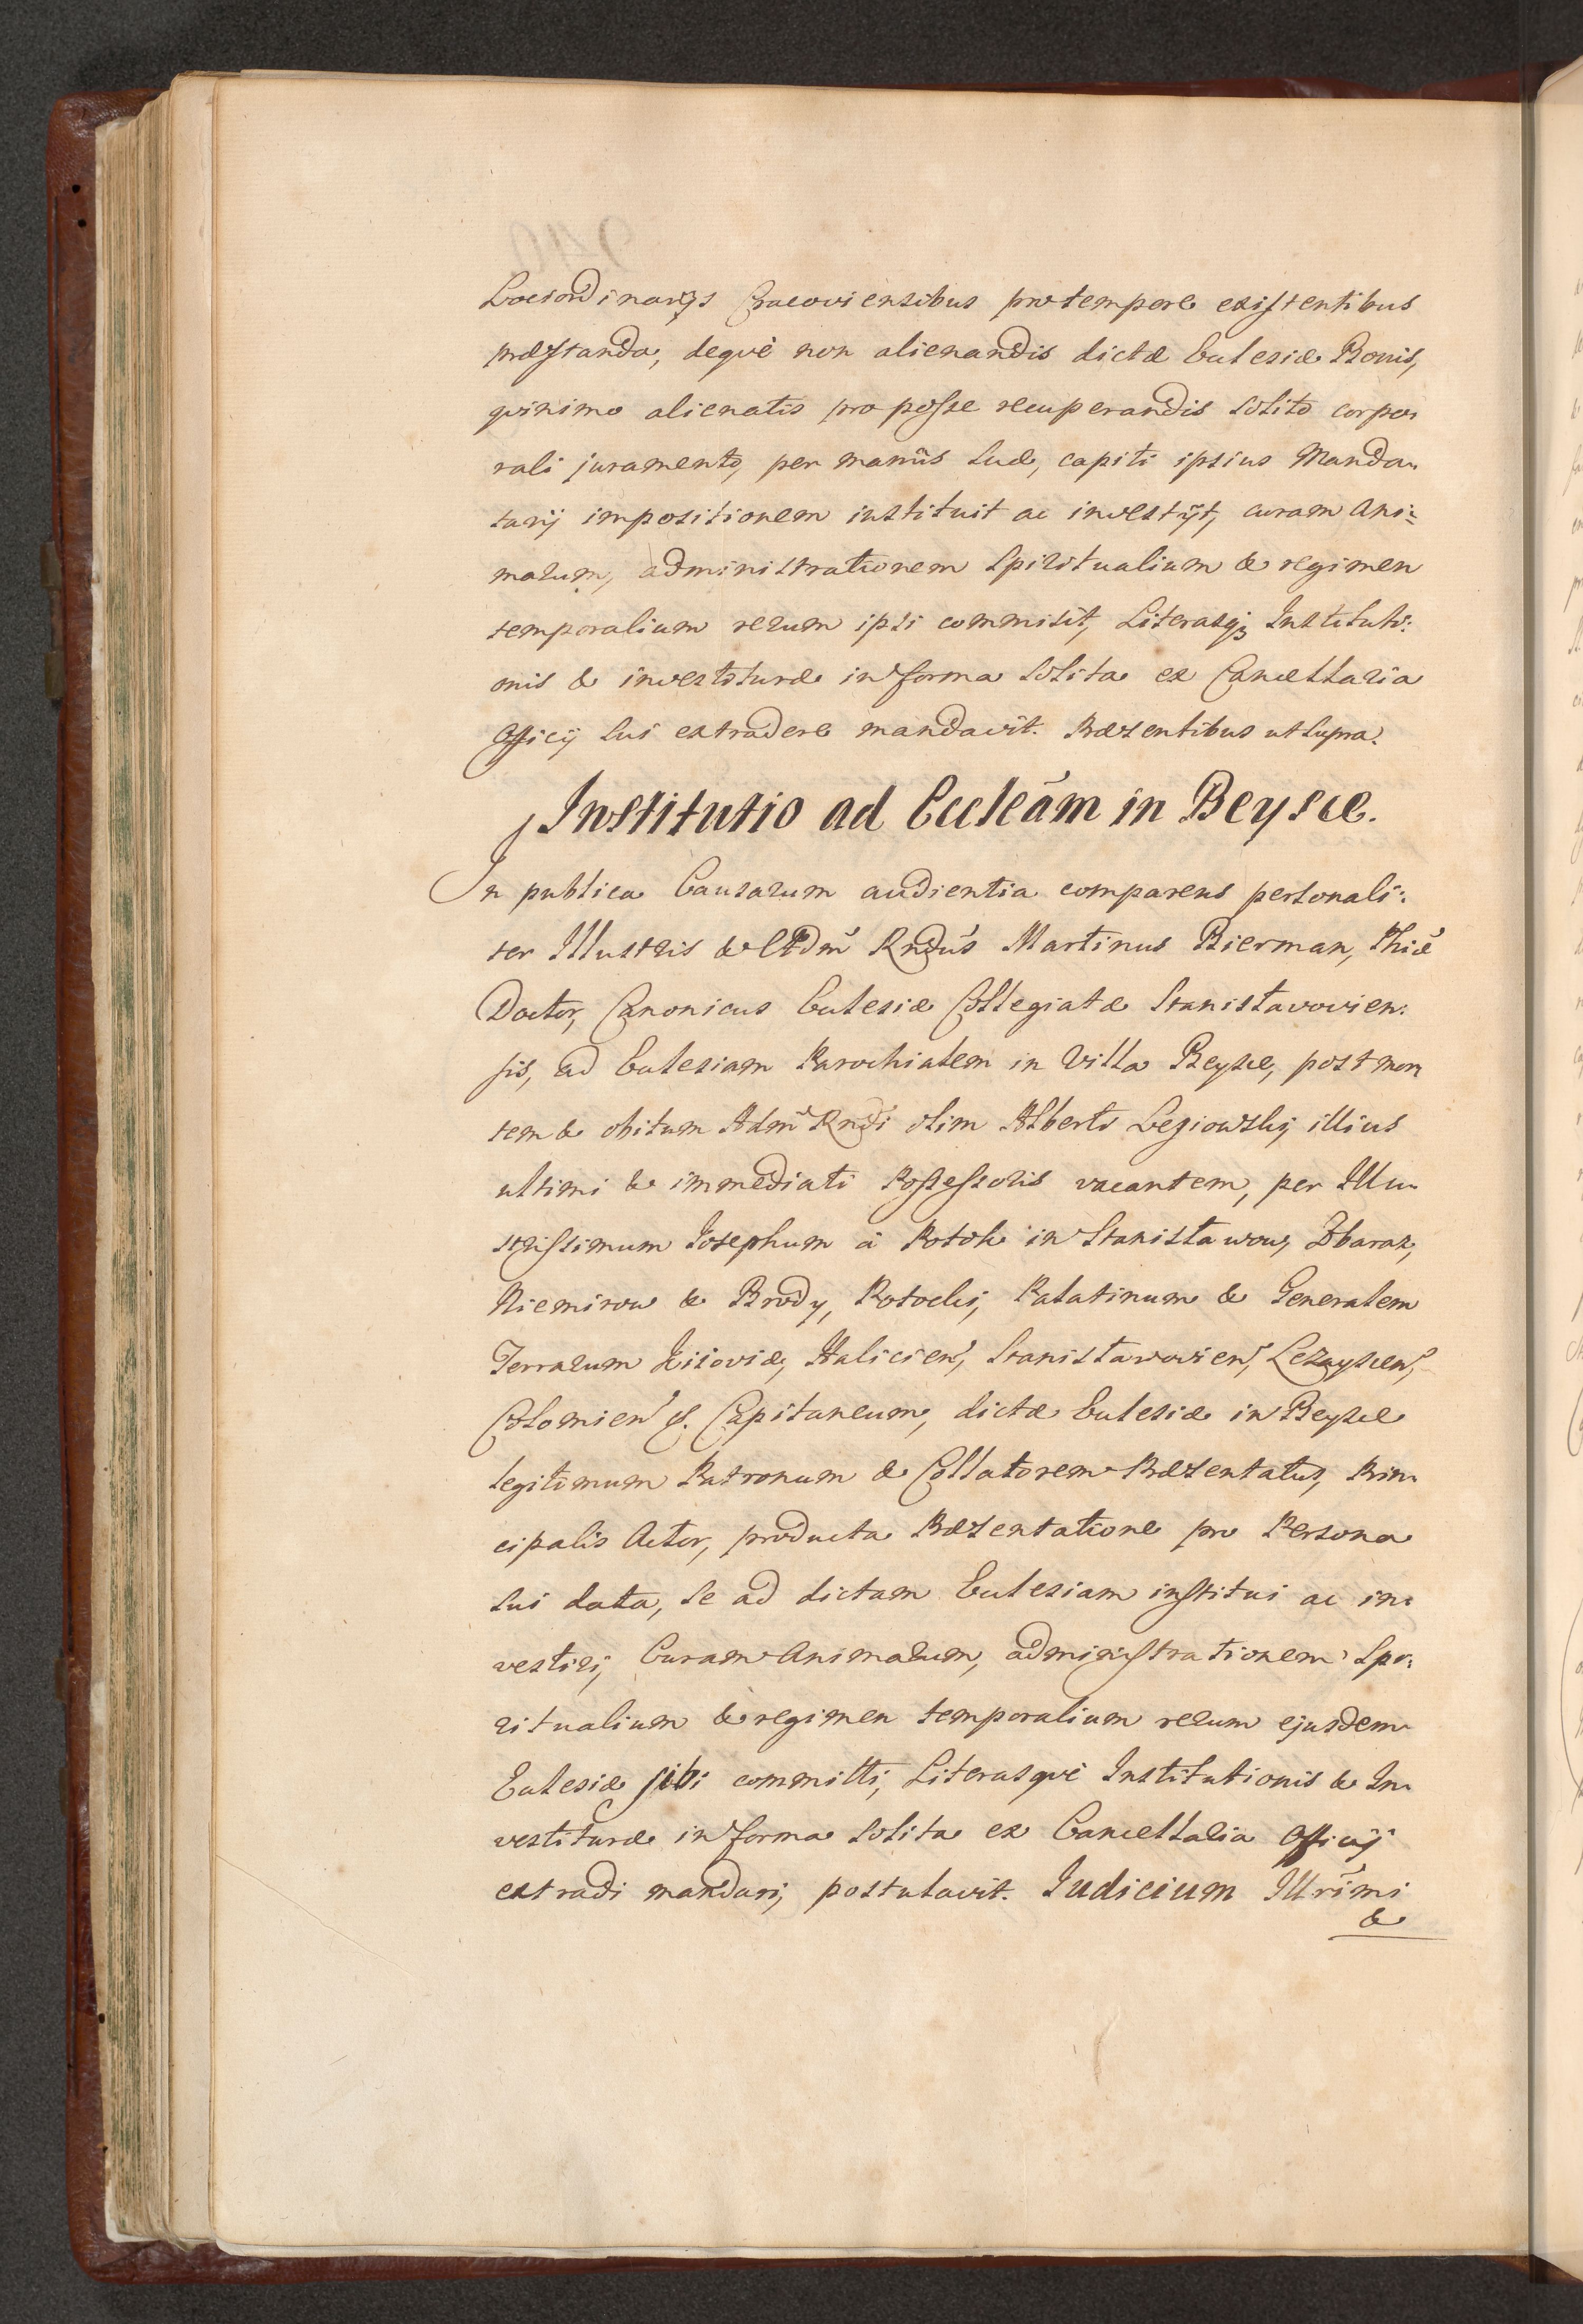 Lociordinarijs Cracoviensibus pro tempore existentibus
præstanda, deqvè non alienandis dictæ Ecclesiæ Bonis,
qvinimo alienatis pro posse recuperandis solito corpo,
rali juramento, per manûs suæ, capiti ipsius Manda,
tarij impositionem instituit ac investijt, curam Ani=
marum, administrationem Spiritualium & regimen
temporalium rerum ipsi commisit, Literasq3 Instituti:
onis & investituræ in forma solita ex Cancellaria
Officij sui extradere mandavit. Præsentibus ut supra.
Institutio ad Eccleãm in Beysce.
In publica Causarum audientia comparens personali:
ter Illustris & Adm̃ Rndũs Martinus Bierman, Phiæ
Doctor, Canonicus Ecclesiæ Collegiatæ Stanislavovien:
sis, ad Ecclesiam Parochialem in Villa Beysce, post mor,
tem & obitum Adm̃ Rndi olim Alberti Legiowski, illius
ultimi & immediati Possessoris vacantem, per Illu,
strissimum Josephum à Potok in Stanislawow, Zbaraz,
Niemirow & Brody, Potocki, Palatinum & Generalem
Terrarum Kijoviæ, Halicien̉, Stanislawovien̉, Lezayscen̉,
Colomien̉ &. Capitaneum, dictæ Ecclesiæ in Beysce
legitimum Patronum & Collatorem Præsentatus, Prin,
cipalis Actor, producta Præsentatione pro Persona
sui data, se ad dictam Ecclesiam institui ac in,
vestiri, Curam Animarum, administrationem Spi:
ritualium & regimen temporalium rerum ejusdem
Ecclesiæ sibi committi, Literasqvè Institutionis & In,
vestituræ in forma solita ex Cancellaria Officij
extradi mandari, postulavit. Judicium Illrĩmi
&